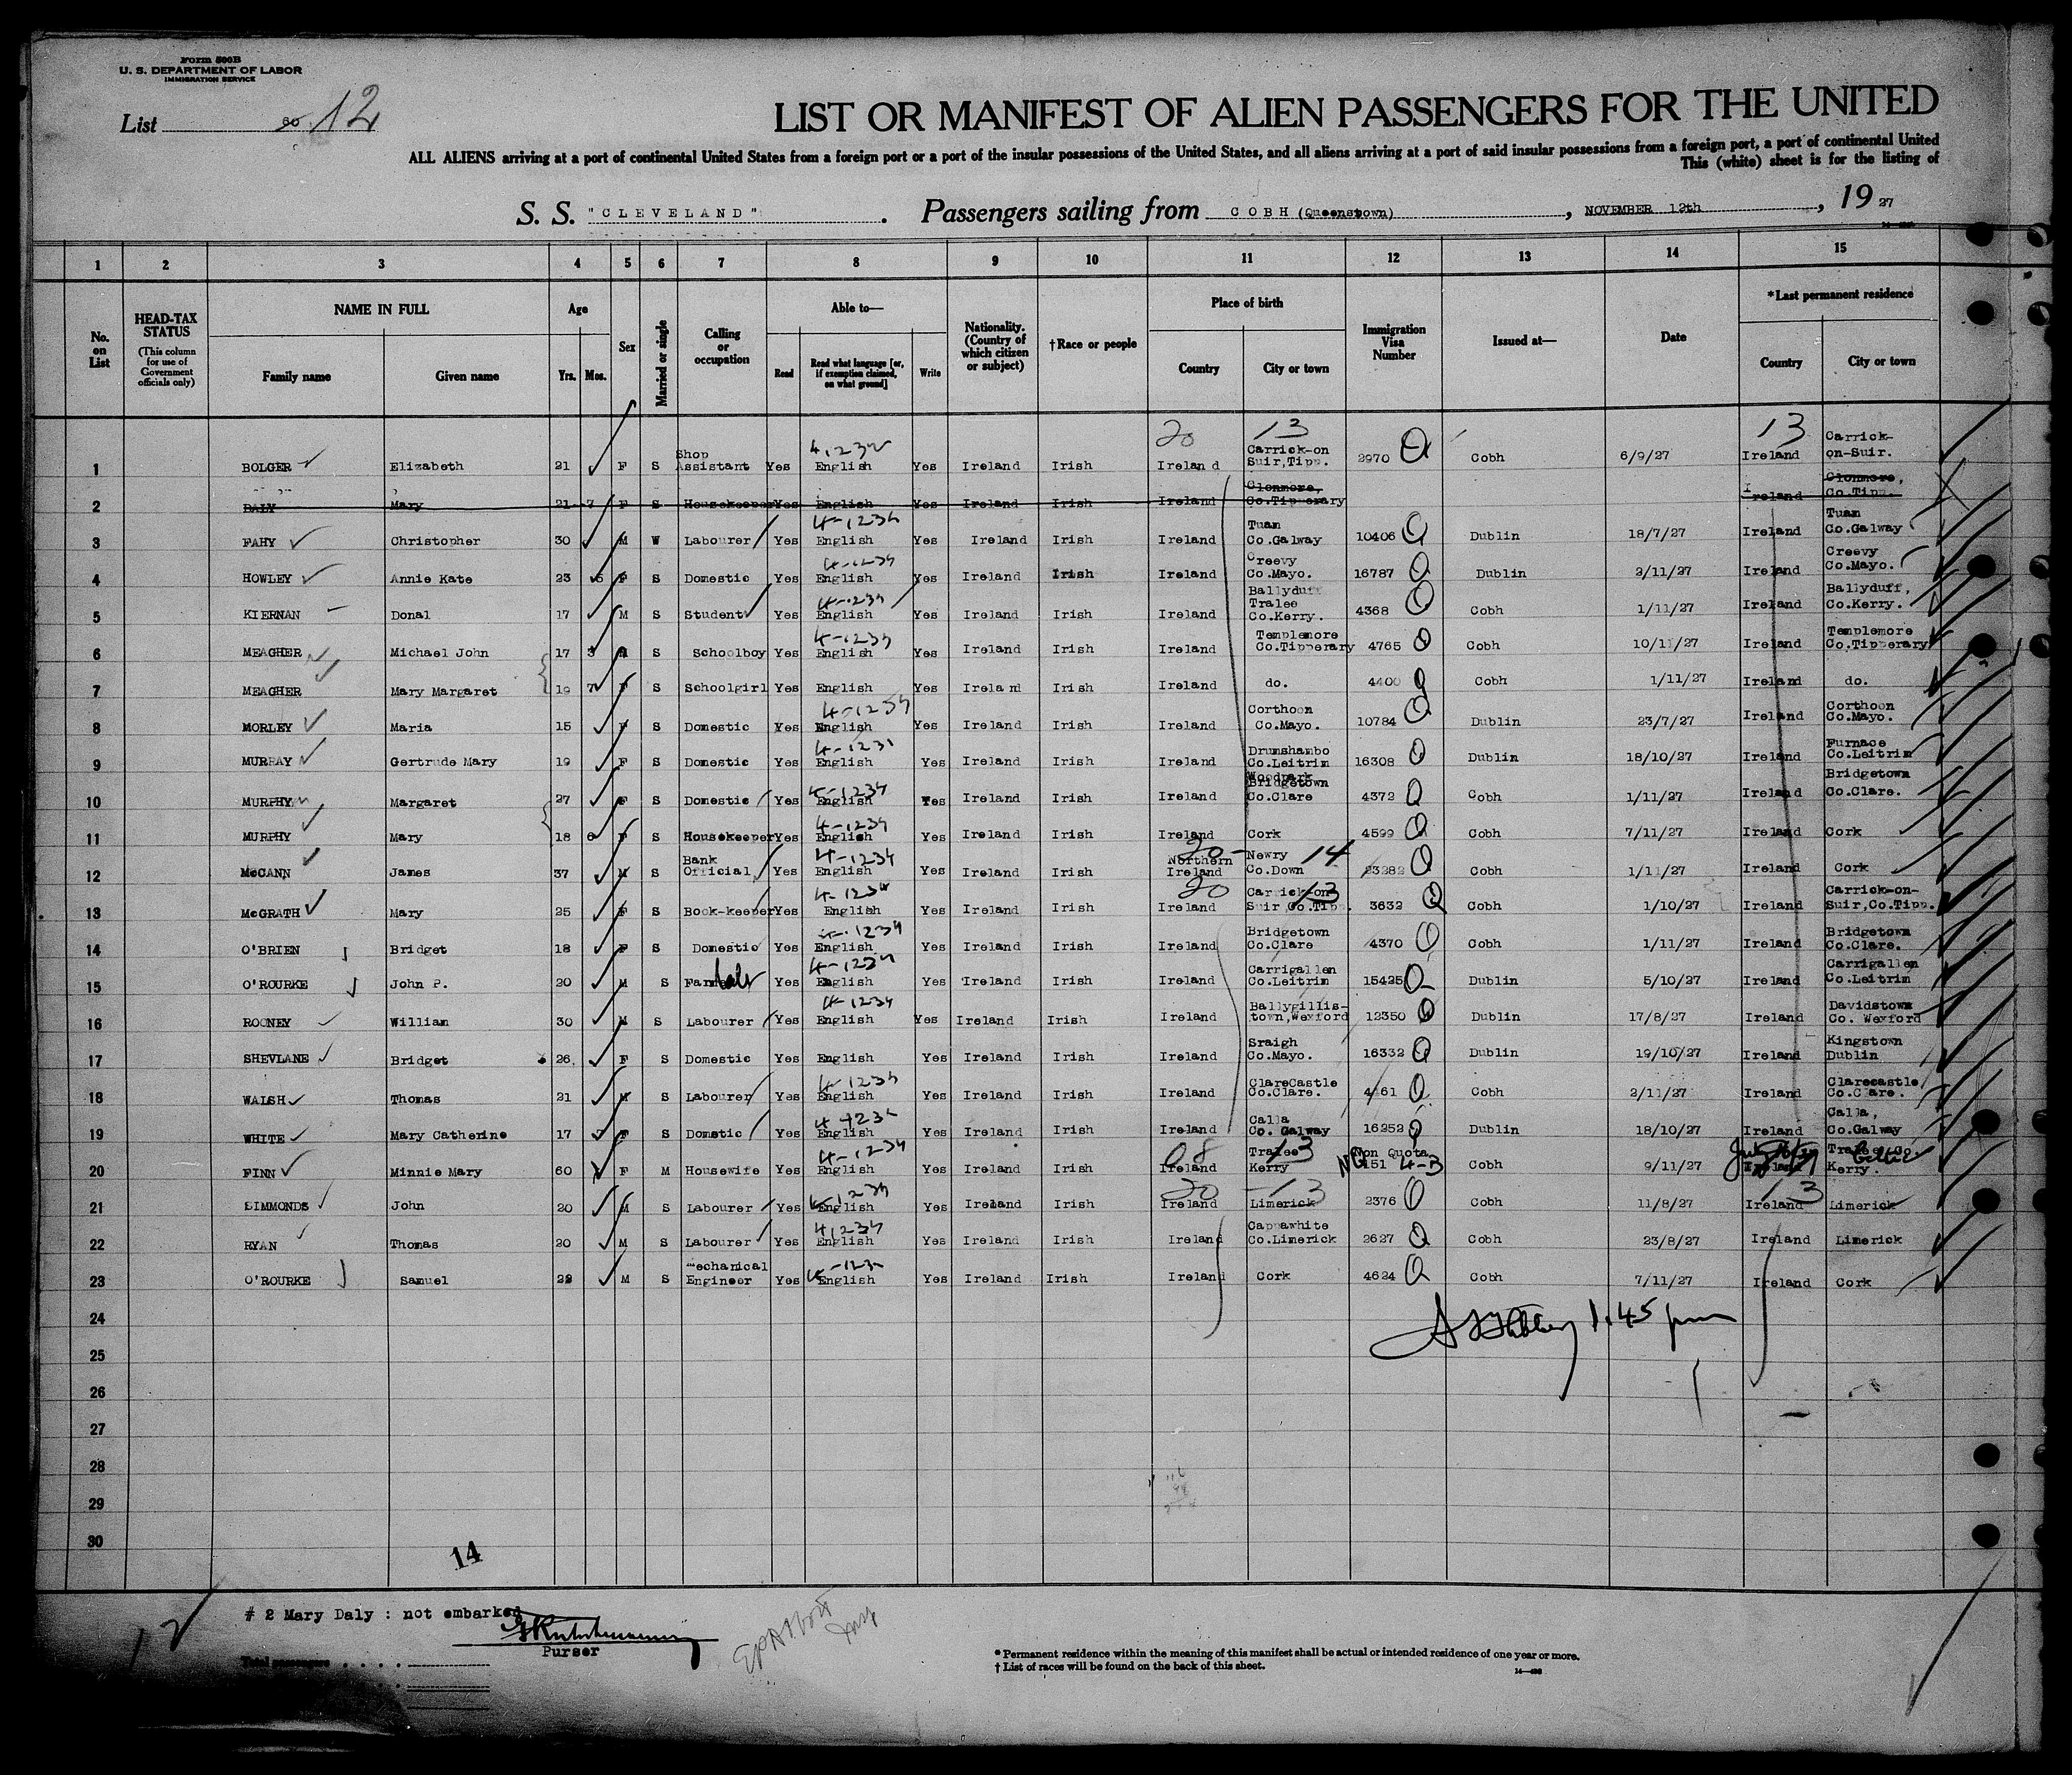 Form 500B
U. S. DEPARTMENT OF LABOR
IMMIGRATION SERVICE
List 60 12
LIST OR MANIFEST OF ALIEN PASSENGERS FOR THE UNITED
ALL ALIENS arriving at a port of continental United States from a foreign port or a port of the insular possessions of the United States, and all aliens arriving at a port of said insular possessions from a foreign port, a port of continental United
This (white) sheet is for the listing of
S. S. "CLEVELAND". Passengers sailing from COBH (Queenstown), NOVEMBER 12th, 19 27
1 2 3 4 5 6 7 8 9 10 11 12 13 14 15
No. on List HEAD-TAX STATUS (This column for use of Government officials only) NAME IN FULL Family name Given name Age Yrs. Mos. Sex Married or single Calling or occupation Able to— Read Read what language [or, if exemption claimed, on what ground] Write Nationality. (Country of which citizen or subject) †Race or people Place of birth Country City or town Immigration Visa Number Issued at— Date *Last permanent residence Country City or town
20 13 13
1 BOLGER Elizabeth 21 F S Shop Assistant Yes 4,1232 English Yes Ireland Irish Ireland Carrick-on Suir,Tipp. 2970 Q Cobh 6/9/27 Ireland Carrick-on-Suir.
2 DALY Mary 21 7 F S Housekeeper Yes English Yes Ireland Irish Ireland Clonmore, Co.Tipperary Ireland Clonmore, Co.Tipp.
3 FAHY Christopher 30 M W Labourer Yes 4-1234 English Yes Ireland Irish Ireland Tuam Co.Galway 10406 Q Dublin 18/7/27 Ireland Tuam Co.Galway
4 HOWLEY Annie Kate 23 6 F S Domestic Yes 4-1234 English Yes Ireland Irish Ireland Creevy Co.Mayo. 16787 Q Dublin 2/11/27 Ireland Creevy Co.Mayo.
5 KIERNAN Donal 17 M S Student Yes 4-1234 English Yes Ireland Irish Ireland Ballyduff Tralee Co.Kerry. 4368 Q Cobh 1/11/27 Ireland Ballyduff, Co.Kerry.
6 MEAGHER Michael John 17 3 M S Schoolboy Yes 4-1234 English Yes Ireland Irish Ireland Templemore Co.Tipperary 4765 Q Cobh 10/11/27 Ireland Templemore Co.Tipperary
7 MEAGHER Mary Margaret 19 7 F S Schoolgirl Yes English Yes Ireland Irish Ireland do. 4400 Q Cobh 1/11/27 Ireland do.
8 MORLEY Maria 15 F S Domestic Yes 4-1234 English Yes Ireland Irish Ireland Corthoon Co.Mayo. 10784 Q Dublin 23/7/27 Ireland Corthoon Co.Mayo.
9 MURRAY Gertrude Mary 19 F S Domestic Yes 4-1231 English Yes Ireland Irish Ireland Drumshambo Co.Leitrim 16308 Q Dublin 18/10/27 Ireland Furnace Co.Leitrim
10 MURPHY Margaret 27 F S Domestic Yes 4-1234 English Yes Ireland Irish Ireland Woodpark Bridgetown Co.Clare 4372 Q Cobh 1/11/27 Ireland Bridgetown Co.Clare.
11 MURPHY Mary 18 6 F S Housekeeper Yes 4-1234 English Yes Ireland Irish Ireland Cork 4599 Q Cobh 7/11/27 Ireland Cork
12 McCANN James 37 M S Bank Official Yes 4-1234 English Yes Ireland Irish 20 Northern Ireland Newry 14 Co.Down 23282 Q Cobh 1/11/27 Ireland Cork
13 McGRATH Mary 25 F S Book-keeper Yes 4-1234 English Yes Ireland Irish 20 Ireland Carrick-on 13 Suir,Co.Tipp. 3632 Q Cobh 1/10/27 Ireland Carrick-on-Suir,Co.Tipp.
14 O'BRIEN Bridget 18 F S Domestic Yes 4-1234 English Yes Ireland Irish Ireland Bridgetown Co.Clare 4370 Q Cobh 1/11/27 Ireland Bridgetown Co.Clare.
15 O'ROURKE John P. 20 M S Farmer Lab Yes 4-1234 English Yes Ireland Irish Ireland Carrigallen Co.Leitrim 15425 Q Dublin 5/10/27 Ireland Carrigallen Co.Leitrim
16 ROONEY William 30 M S Labourer Yes 4-1234 English Yes Ireland Irish Ireland Ballygillis-town,Wexford 12350 Q Dublin 17/8/27 Ireland Davidstown Co. Wexford
17 SHEVLANE Bridget 26. F S Domestic Yes English Yes Ireland Irish Ireland Sraigh Co.Mayo. 16332 Q Dublin 19/10/27 Ireland Kingstown Dublin
18 WALSH Thomas 21 M S Labourer Yes 4-1234 English Yes Ireland Irish Ireland ClareCastle Co.Clare. 4461 Q Cobh 2/11/27 Ireland Clarecastle Co.Clare.
19 WHITE Mary Catherine 17 7 F S Domstic Yes 4-1234 English Yes Ireland Irish Ireland Calla Co. Galway 16252 Q Dublin 18/10/27 Ireland Calla, Co.Galway
20 FINN Minnie Mary 60 F M Housewife Yes 4-1234 English Yes Ireland Irish 08 Ireland Tralee 13 Kerry Non Quota NQ 151 4-3 Cobh 9/11/27 Ireland Tralee Co. Kerry.
21 SIMMONDS John 20 M S Labourer Yes 4-1234 English Yes Ireland Irish 20 Ireland 13 Limerick 2376 Q Cobh 11/8/27 Ireland 13 Limerick
22 RYAN Thomas 20 M S Labourer Yes 4,1234 English Yes Ireland Irish Ireland Cappawhite Co.Limerick 2627 Q Cobh 23/8/27 Ireland Limerick
23 O'ROURKE Samuel 22 M S Mechanical Engineer Yes 4-123 English Yes Ireland Irish Ireland Cork 4624 Q Cobh 7/11/27 Ireland Cork
24 1.45 pm
25
26
27
28
29
30
14
# 2 Mary Daly : not embarked
Purser
12
Total passengers
* Permanent residence within the meaning of this manifest shall be actual or intended residence of one year or more.
† List of races will be found on the back of this sheet.